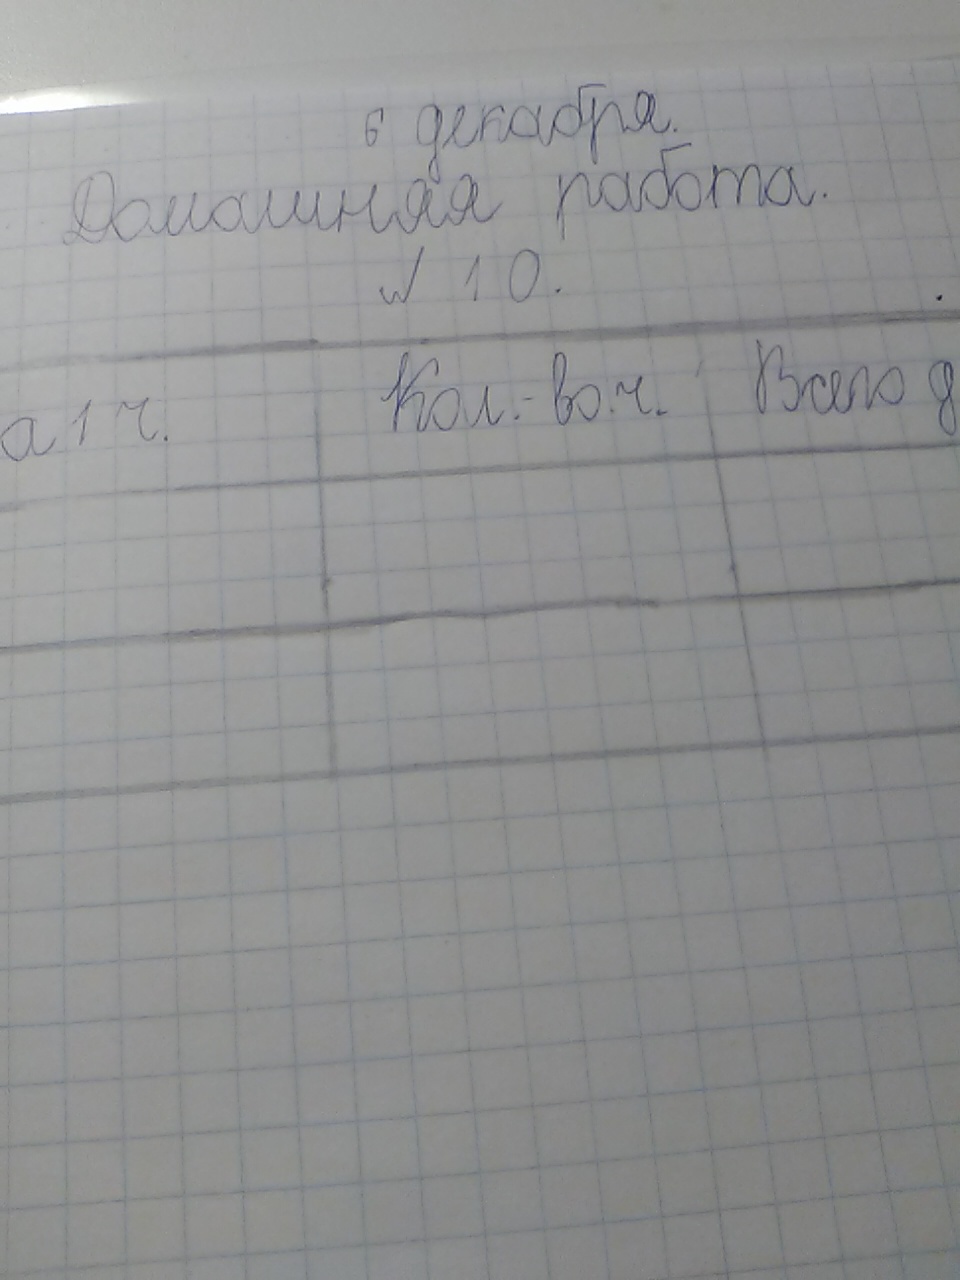 6 декабря.
Домашняя работа.
№ 10.
а 1 ч. Кол.-во.ч. Всего д